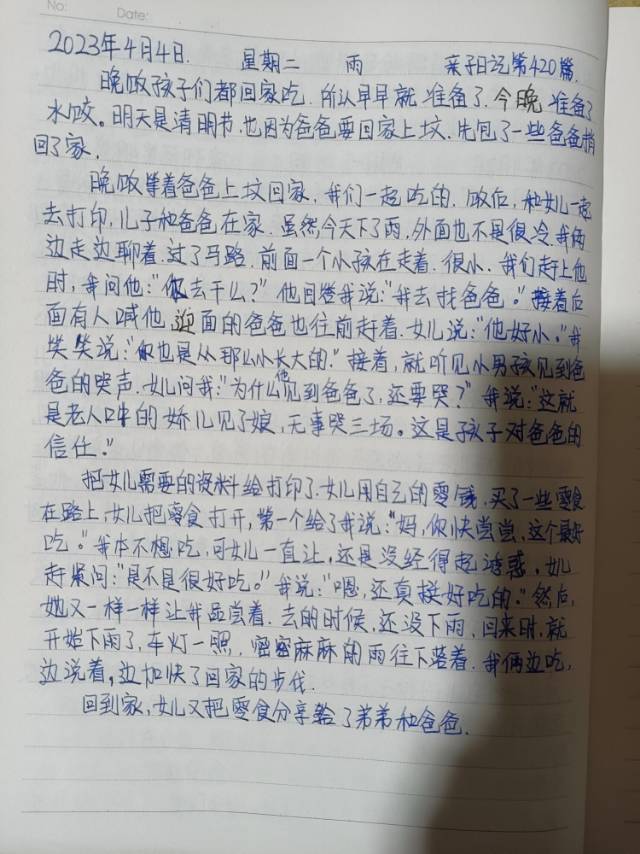 No: Date:
2023年4月4日. 星期二 雨 亲子日记第420篇.
晚饭孩子们都回家吃.所以早早就准备了.今晚准备了
水饺。明天是清明节.也因为爸爸要回家上坟.先包了一些爸爸捎
回了家.
晚饭等着爸爸上坟回家.我们一起吃的.饭后,和女儿一起
去打印,儿子和爸爸在家.虽然今天下了雨,外面也不是很冷.我俩
边走边聊着.过了马路.前面一个小孩在走着.很小.我们赶上他
时,我问他:“你去干么?”他回答我说:“我去找爸爸。”接着后
面有人喊他,迎面的爸爸也往前赶着.女儿说:“他好小。”我
笑笑说:“你也是从那么小长大的.”接着,就听见小男孩见到爸
爸的哭声.女儿问我:“为什么他见到爸爸了,还要哭?”我说:“这就
是老人口中的娇儿见了娘,无事哭三场。这是孩子对爸爸的
信任。”
把女儿需要的资料给打印了.女儿用自己的零钱.买了一些零食
在路上,女儿把零食打开,第一个给了我说:“妈,你快尝尝,这个最好
吃。”我本不想吃,可女儿一直让,还是没经得起诱惑,女儿
赶紧问:“是不是很好吃。”我说:“嗯,还真挺好吃的.”然后,
她又一样一样让我品尝着.去的时候,还没下雨,回来时,就
开始下雨了,车灯一照,密密麻麻的雨往下落着.我俩边吃,
边说着,边加快了回家的步伐.
回到家,女儿又把零食分享给了弟弟和爸爸.